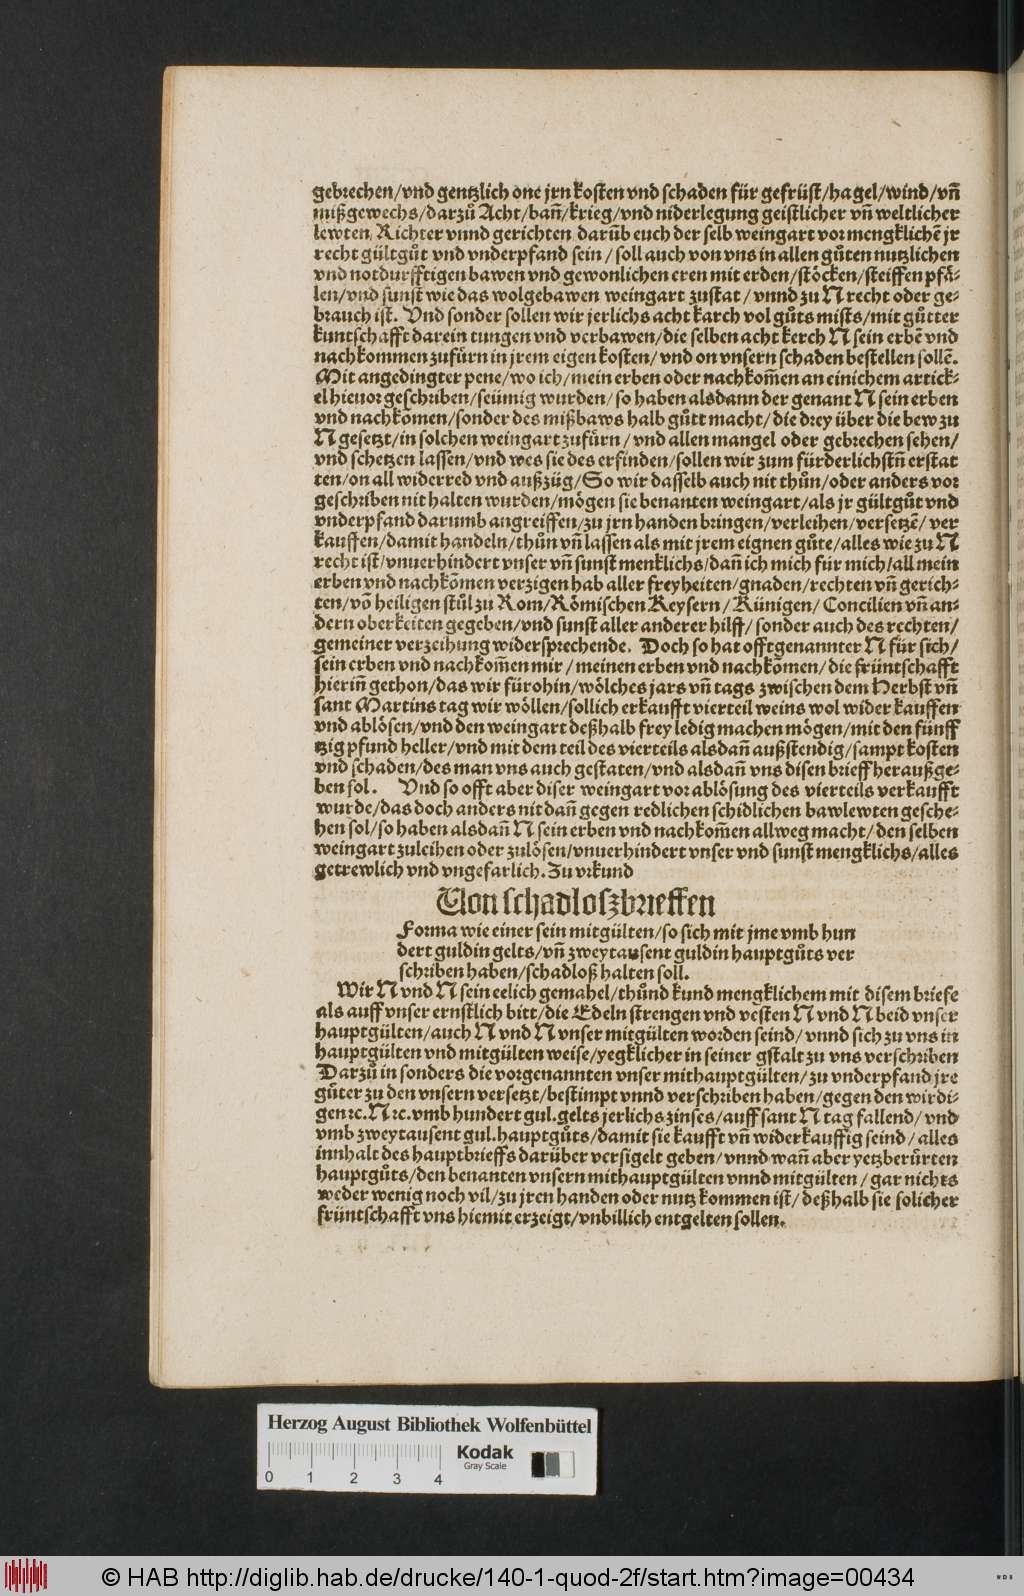 gebrechen/vnd gentzlich one jrn kosten vnd schaden für gefrüst/hagel/wind/vñ
mißgewechs/darzů Acht/bañ/krieg/vnd niderlegung geistlicher vñ weltlicher
lewten, Richter vnnd gerichten, darüb euch der selb weingart vor mengklichē jr
recht gültgůt vnd vnderpfand sein/soll auch von vns in allen gůten nutzlichen
vnd notdurfftigen bawen vnd gewonlichen eren mit erden/stöcken/steiffen pfä-
len/vnd sunst wie das wolgebawen weingart zustat/vnnd zu N recht oder ge-
brauch ist. Vnd sonder sollen wir jerlichs acht karch vol gůts mists/mit gůtter
kuntschafft darein tungen vnd verbawen/die selben acht kerch N sein erbē vnd
nachkommen zufürn in jrem eigen kosten/vnd on vnsern schaden bestellen sollē.
Mit angedingter pene/wo ich/mein erben oder nachkom̃en an einichem artick-
el hieuor geschriben/seümig wurden/so haben alsdann der genant N sein erben
vnd nachkōmen/sonder des mißbaws halb gůtt macht/die drey über die bew zu
N gesetzt/in solchen weingart zufürn/vnd allen mangel oder gebrechen sehen/
vnd schetzen lassen/vnd wes sie des erfinden/sollen wir zum fürderlichstñ erstat
ten/on all widerred vnd außzüg/So wir dasselb auch nit thůn/oder anders vor
geschriben nit halten wurden/mögen sie benanten weingart/als jr gültgůt vnd
vnderpfand darumb angreiffen/zu jrn handen bringen/verleihen/versetzē/ver
kauffen/damit handeln/thůn vñ lassen als mit jrem eignen gůte/alles wie zu N
recht ist/vnuerhindert vnser vñ sunst menklichs/dañ ich mich für mich/all mein
erben vnd nachkōmen verzigen hab aller freyheiten/gnaden/rechten vñ gerich-
ten/vō heiligen stůl zu Rom/Römischen Keysern/Künigen/Concilien vñ an-
dern oberkeiten gegeben/vnd sunst aller anderer hilff/sonder auch des rechten/
gemeiner verzeihung widersprechende. Doch so hat offtgenannter N für sich/
sein erben vnd nachkom̃en mir/meinen erben vnd nachkōmen/die früntschafft
hieriñ gethon/das wir fürohin/wölches jars vñ tags zwischen dem Herbst vñ
sant Martins tag wir wöllen/sollich erkaufft vierteil weins wol wider kauffen
vnd ablösen/vnd den weingart deßhalb frey ledig machen mögen/mit den fünff
tzig pfund heller/vnd mit dem teil des vierteils alsdañ außstendig/sampt kosten
vnd schaden/des man vns auch gestaten/vnd alsdañ vns disen brieff heraußge-
ben sol. Vnd so offt aber diser weingart vor ablösung des vierteils verkaufft
wurde/das doch anders nit dañ gegen redlichen schidlichen bawlewten gesche-
hen sol/so haben alsdañ N sein erben vnd nachkom̃en allweg macht/den selben
weingart zuleihen oder zulösen/vnuerhindert vnser vnd sunst mengklichs/alles
getrewlich vnd vngefarlich. Zu vrkund
Von schadloszbrieffen
Forma wie einer sein mitgülten/so sich mit jme vmb hun
dert guldin gelts/vñ zweytausent guldin hauptgůts ver
schriben haben/schadloß halten soll.
Wir N vnd N sein eelich gemahel/thůnd kund mengklichem mit disem briefe
als auff vnser ernstlich bitt/die Edeln strengen vnd vesten N vnd N beid vnser
hauptgülten/auch N vnd N vnser mitgülten worden seind/vnnd sich zu vns in
hauptgülten vnd mitgülten weise/yegklicher in seiner gstalt zu vns verschriben
Darzů in sonders die vorgenannten vnser mithauptgülten/zu vnderpfand jre
gůter zu den vnsern versetzt/bestimpt vnnd verschriben haben/gegen den wirdi-
gen ꝛc. N ꝛc. vmb hundert gul. gelts jerlichs zinses/auff sant N tag fallend/vnd
vmb zweytausent gul. hauptgůts/damit sie kaufft vñ widerkauffig seind/alles
innhalt des hauptbrieffs darüber versigelt geben/vnnd wañ aber yetzberürten
hauptgůts/den benanten vnsern mithauptgülten vnnd mitgülten/gar nichts
weder wenig noch vil/zu jren handen oder nutz kommen ist/deßhalb sie solicher
früntschafft vns hiemit erzeigt/vnbillich entgelten sollen.
Herzog August Bibliothek Wolfenbüttel
Kodak
Gray Scale
0 1 2 3 4
© HAB http://diglib.hab.de/drucke/140-1-quod-2f/start.htm?image=00434